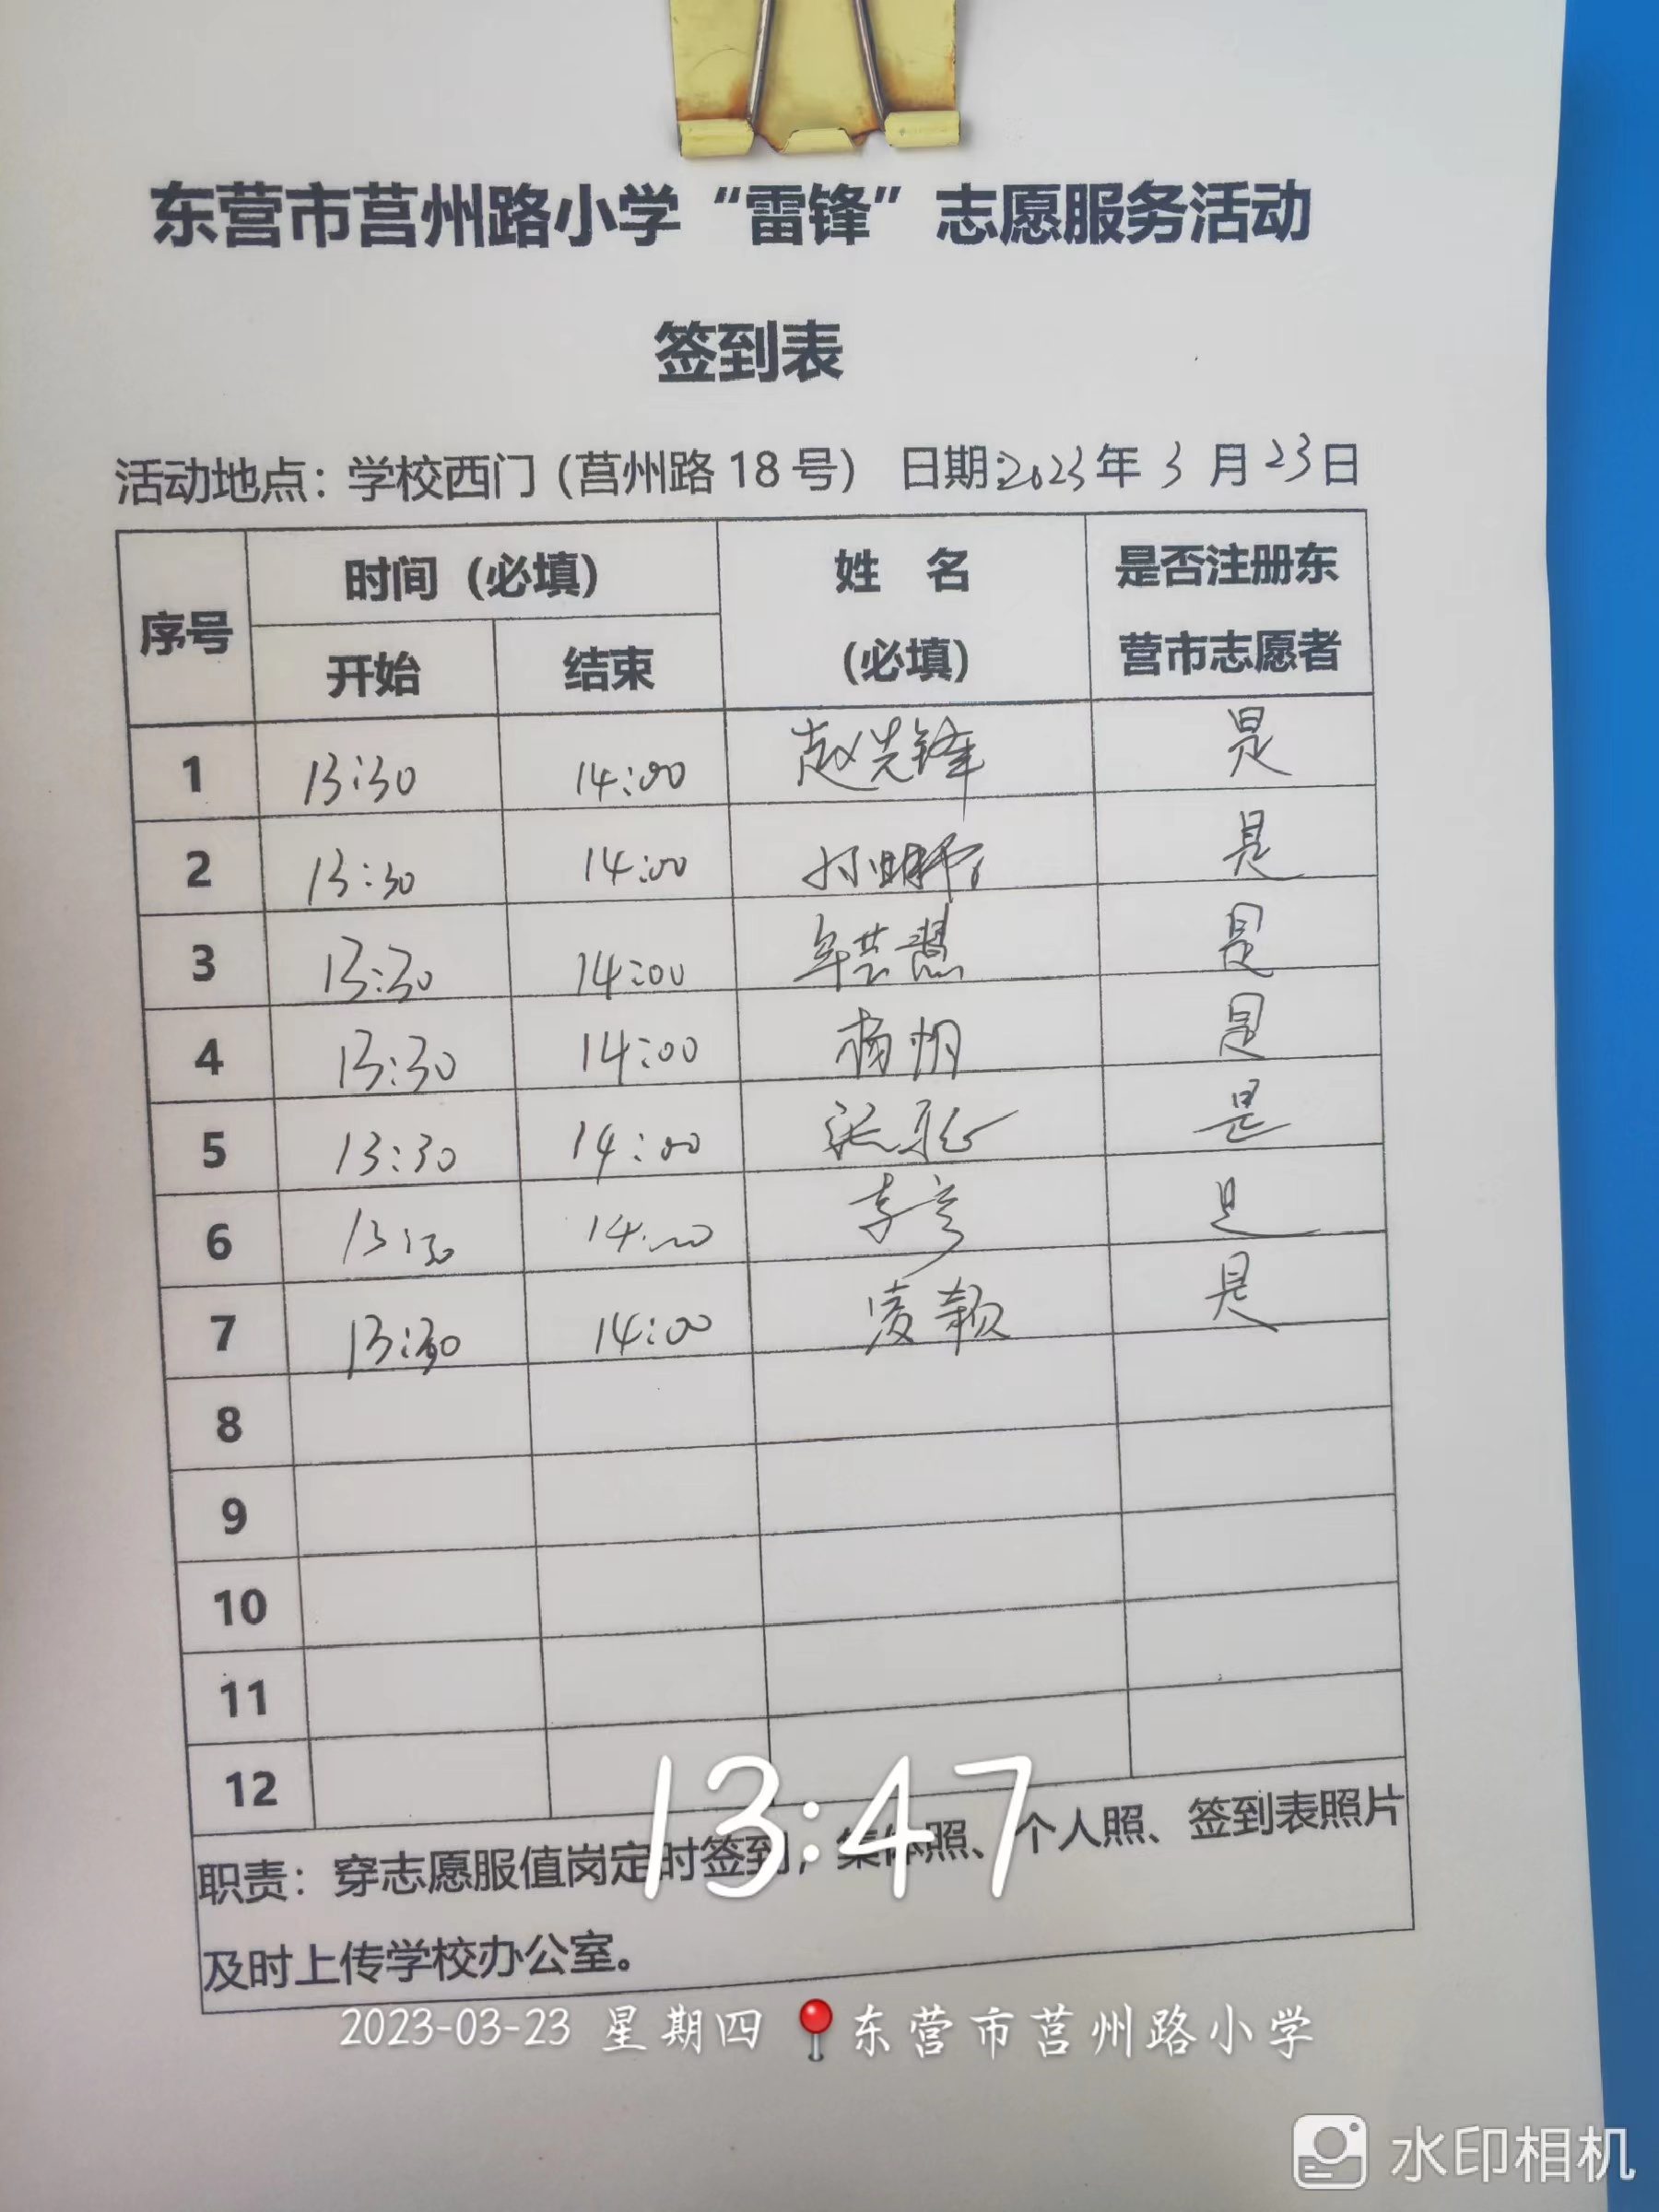 东营市莒州路小学“雷锋”志愿服务活动
签到表
活动地点：学校西门（莒州路 18 号） 日期:2023年 3 月 23日
序号 时间（必填） 姓 名 （必填） 是否注册东营市志愿者
开始 结束
1 13:30 14:00 赵先锋 是
2 13:30 14:00 是
3 13:30 14:00 牟芸慧 是
4 13:30 14:00 杨帆 是
5 13:30 14:00 是
6 13:30 14:00 李彦 是
7 13:30 14:00 凌颖 是
8
9
10
11
12
职责：穿志愿服值岗定时签到，集体照、个人照、签到表照片
及时上传学校办公室。
13:47
2023-03-23 星期四 东营市莒州路小学
水印相机